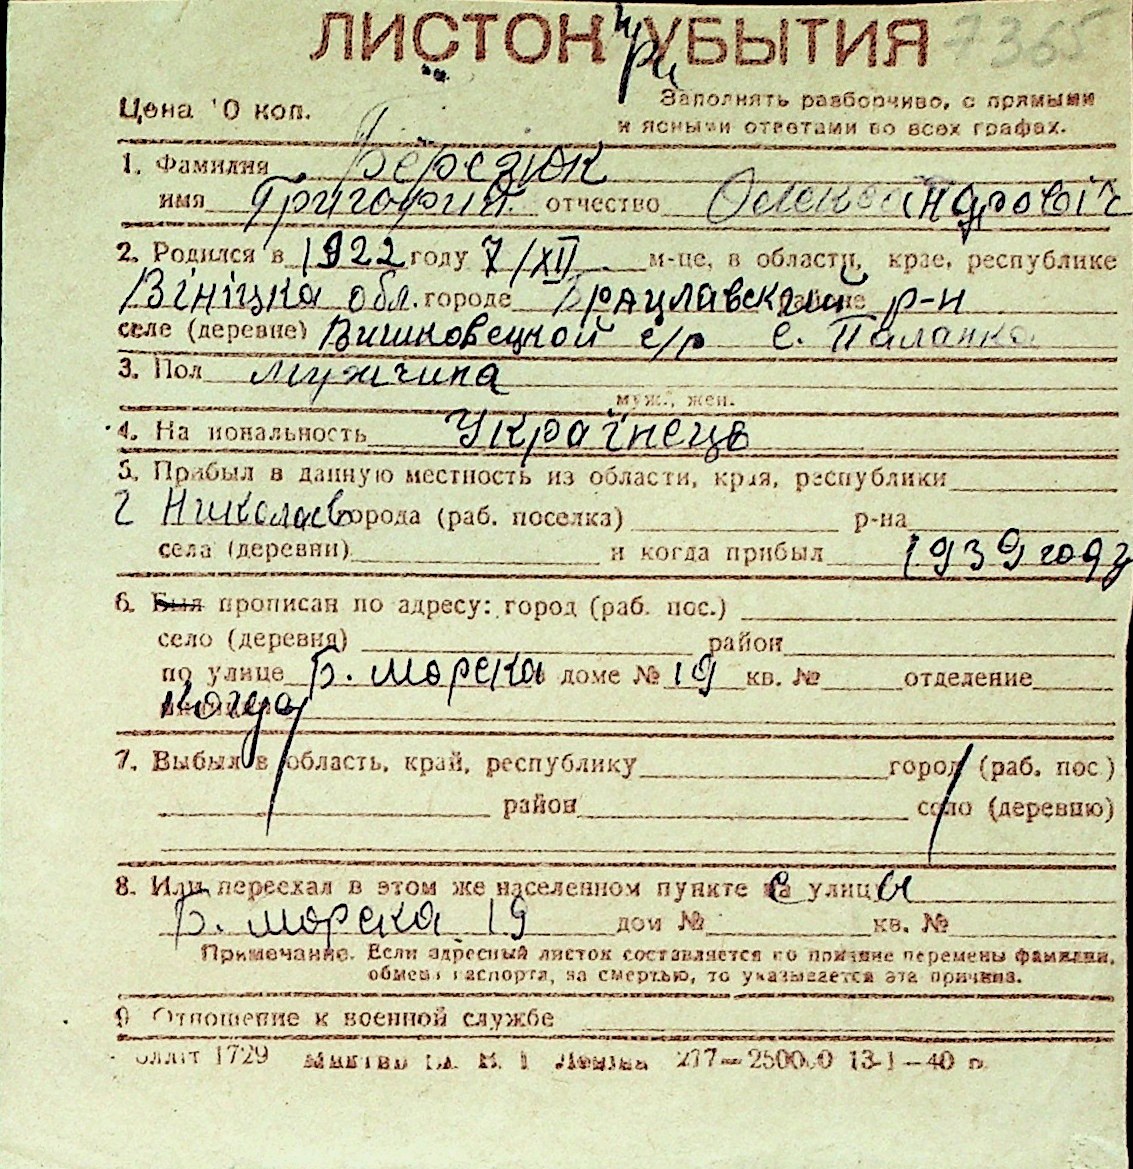 ЛИСТОК при УБЫТИЯ 7365
Цена 10 коп. Заполнять разборчиво, с прямыми
и ясными ответами во всех графах.
1. Фамилия Березюк
имя Григорий отчество Олександрович
2. Родился в 1922 году 7/XII м-це, в области, крае, республике
Вініцка обл. городе Брацлавский районе р-н
селе (деревне) Вишковецкой с/р с. Паланка
3. Пол мужчина
муж., жен.
4. Национальность Українець
5. Прибыл в данную местность из области, края, республики
г Николаев города (раб. поселка) р-на
села (деревни) и когда прибыл 1939 году
6. Был прописан по адресу: город (раб. пос.)
село (деревня) район
по улице Б. морска доме № 19 кв. № отделение
милиции
7. Выбыл в область, край, республику город (раб. пос)
район село (деревню)
8. Или переехал в этом же населенном пункте с улицы
Б. морска 19 дом № кв. №
Примечание. Если адресный листок составляется по причине перемены фамилии,
обмена паспорта, за смертью, то указывается эта причина.
9 Отношение к военной службе
1729 Миколаїв Леніна 277—250000 13-1—40 р.